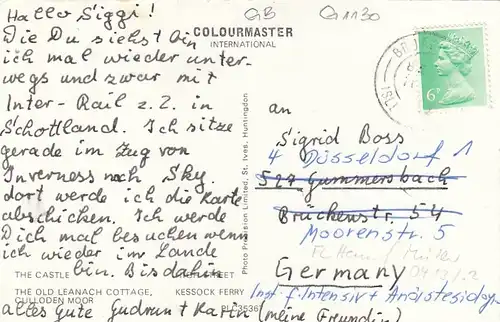 Hallo Siggi!
GB
Q1130
Die Du siehst bin
ich mal wieder unter-
wegs und zwar mit
Inter-Rail z.Z. in
Schottland. Ich sitze
gerade im Zug von
Inverness nach Sky
dort werde ich die Karte
abschicken. Ich werde
Dich mal besuchen wenn
ich wieder im Lande
bin. Bis dahin
alles Gute Gudrun + Karin (meine Freundin)
COLOURMASTER
INTERNATIONAL
Photo Precision Limited, St. Ives, Huntingdon
6P
an
Sigrid Boss
4 Düsseldorf 1
527 Gummersbach
Brückenstr. 54
Moorenstr. 5
Germany
Inst. f. Intensiv + Anästesiolog
THE CASTLE
STREET
THE OLD LEANACH COTTAGE,
CULLODEN MOOR
KESSOCK FERRY